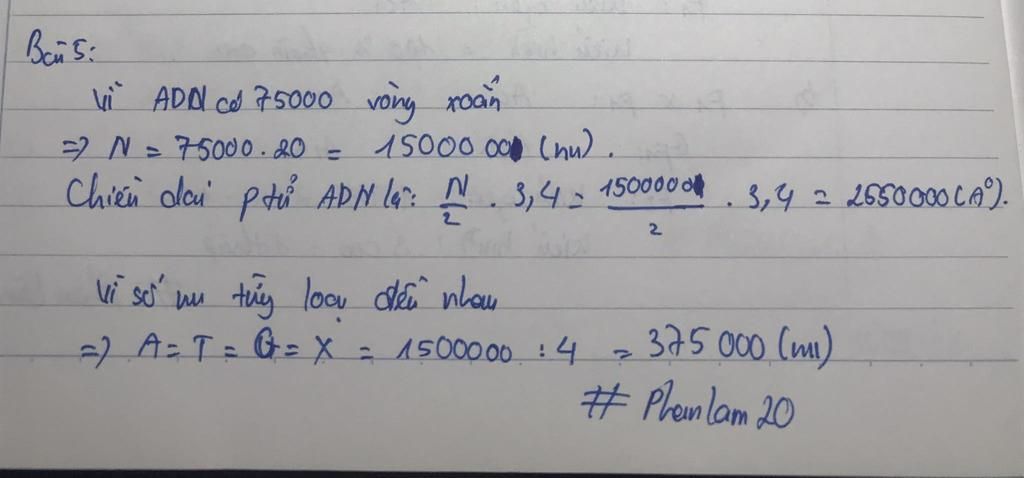 Bài 5:
Vì ADN có 75000 vòng xoắn
=> N = 75000.20 = 1500000 (nu).
Chiều dài ptử ADN là: N/2 . 3,4 = 1500000/2 . 3,4 = 2550000 (A°).
Vì số nu từng loại đều nhau
=> A = T = G = X = 1500000 : 4 = 375 000 (nu)
# Phamlam 20